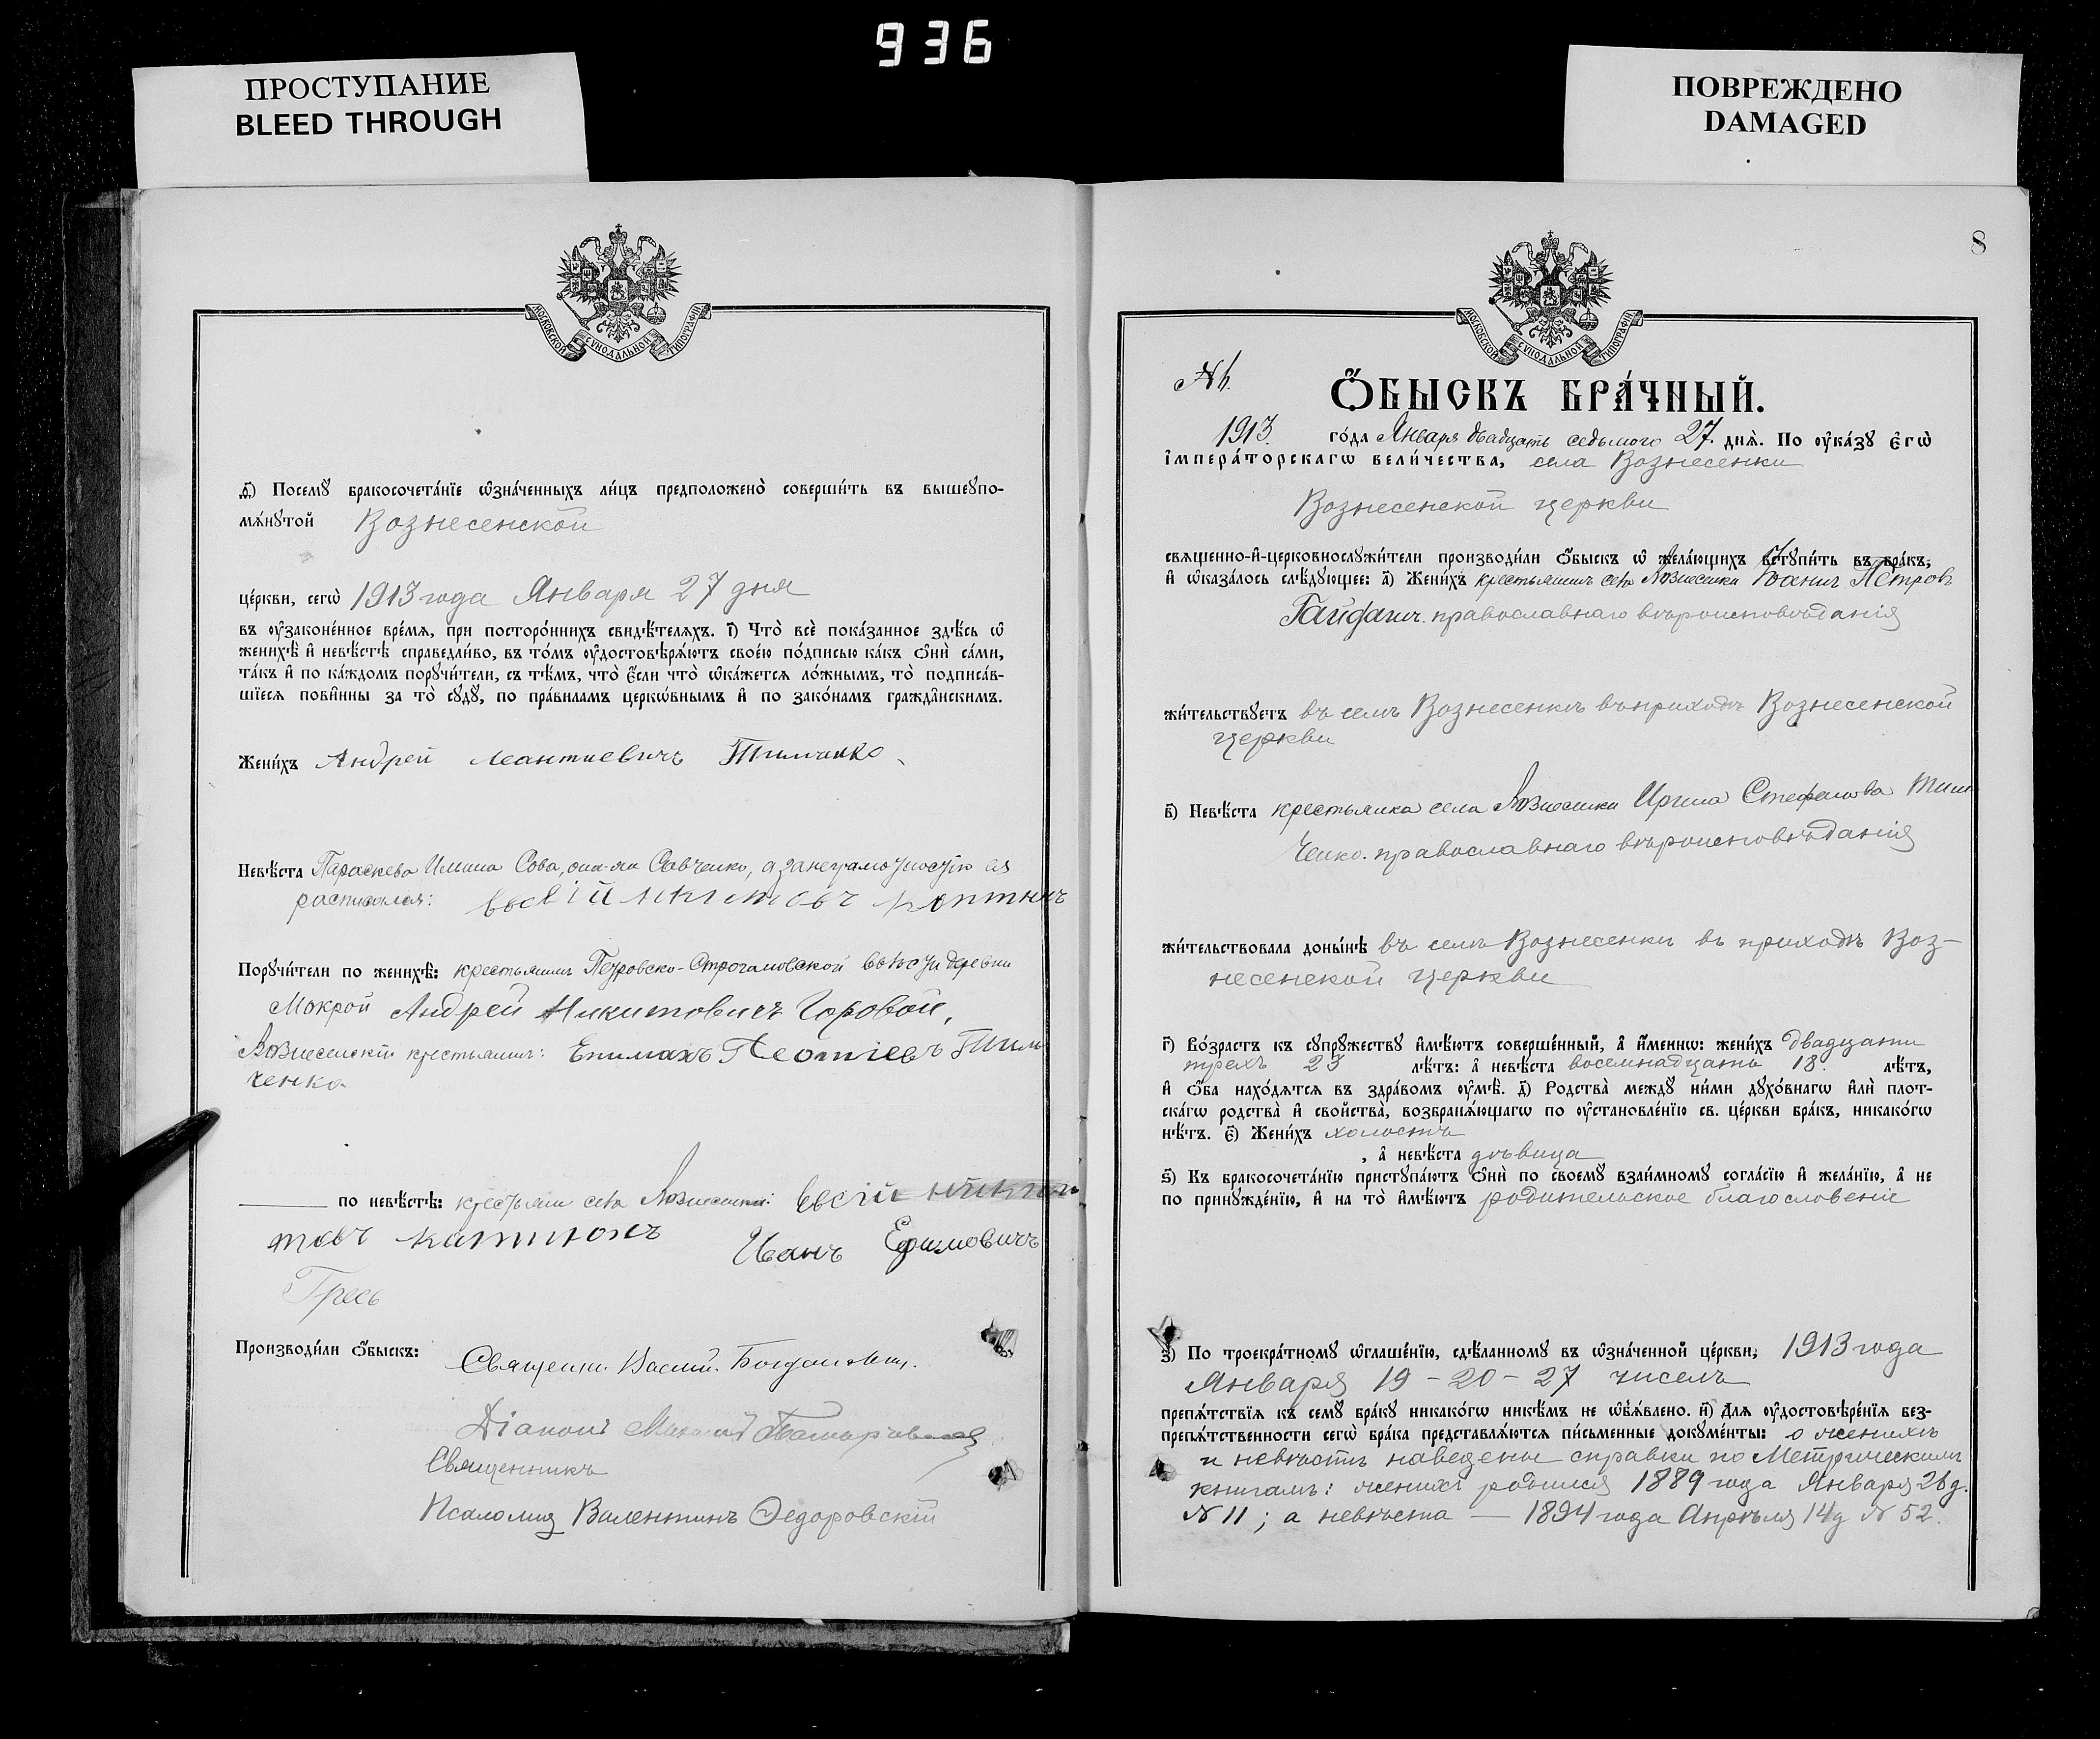 936
ПРОСТУПАНИЕ
BLEED THROUGH
ПОВРЕЖДЕНО
DAMAGED
МОСКОВСКОЙ СѴНОДАЛЬНОЙ ТИПОГРАФІИ
ѳ҃) Посемꙋ бракосочета́нїе ѡ҆зна́ченныхъ ли́цъ предположено̀ соверши́ть въ вышеꙋпо-
мѧ́нꙋтой Вознесенской
це́ркви, сегѡ̀ 1913 года Января 27 дня
въ ᲂу҆зако́ненное вре́мѧ, при посторо́ннихъ свидѣ́телѧхъ. і҃) Что̀ всѐ пока́занное здѣ́сь ѡ҆
женихѣ̀ и҆ невѣ́стѣ справедли́во, въ то́мъ ᲂу҆достовѣрѧ́ютъ свое́ю по́дписью ка́къ ѻ҆нѝ са́ми,
та́къ и҆ по ка́ждомъ порꙋчи́тели, съ тѣ́мъ, что̀ є҆́сли что̀ ѡ҆ка́жетсѧ ло́жнымъ, то̀ подписа́в-
шїесѧ пови́нны за то̀ сꙋдꙋ̀, по пра́виламъ церкѡ́внымъ и҆ по зако́намъ гражда́нскимъ.
Жени́хъ Андрей Леонтиевичъ Тимченко
Невѣ́ста Параскева Сова, она-же Савченко, а за неграмотностію ея
расписался:
Порꙋчи́тели по женихѣ̀: крестьянинъ Петровско- волости деревни
Мокрой Андрей Никитовичъ Горовой,
Вознесенскій крестьянинъ: Епимахъ Леонтіевъ Тим
ченко
по невѣ́стѣ: села Вознесенки:
Иванъ Ефимовичъ
Гресь
Производи́ли ѻ҆́быскъ: Священн. Василій Богданович.
Діаконъ
Священникъ
Псаломщ Валентинъ Федоровскій
8
МОСКОВСКОЙ СѴНОДАЛЬНОЙ ТИПОГРАФІИ
№
Ѻ҆́БЫСКЪ БРА́ЧНЫЙ.
1913. го́да Января двадцать седьмого 27. днѧ̀. По ᲂу҆ка́зꙋ є҆гѡ̀
і҆мпера́торскагѡ вели́чества, села Вознесенки
Вознесенской церкви
свѧщенно-и҆-церковнослꙋжи́тели производи́ли ѻ҆́быскъ ѡ҆ жела́ющихъ встꙋпи́ть въ бра́къ,
и҆ ѡ҆каза́лось слѣ́дꙋющее: а҃) Жени́хъ крестьянинъ села Вознесенки Іоаннъ Петровъ
Гайданъ. православнаго вѣроисповѣданія
жи́тельствꙋетъ въ селѣ Вознесенкѣ въ приходѣ Вознесенской
церкви
в҃) Невѣ́ста крестьянка села Вознесенки Ирина Стефанова Тим
ченко. православнаго вѣроисповѣданія
жи́тельствовала доны́нѣ въ селѣ Вознесенкѣ въ приходѣ Воз-
несенской церкви
г҃) Во́зрастъ къ сꙋпрꙋ́жествꙋ и҆мѣ́ютъ соверше́нный, а҆ и҆́меннѡ: жени́хъ двадцати
трехъ 23 лѣ́тъ: а҆ невѣ́ста восемнадцать 18. лѣ́тъ,
и҆ ѻ҆́ба нахо́дѧтсѧ въ здра́вомъ ᲂу҆мѣ̀. д҃) Родства̀ междꙋ̀ ни́ми дꙋхо́внагѡ и҆лѝ плот-
ска́гѡ родства̀ и҆ сво́йства, возбранѧ́ющагѡ по ᲂу҆становле́нїю св. це́ркви бра́къ, никако́гѡ
нѣ́тъ. є҃) Жени́хъ холостъ
, а҆ невѣ́ста дѣвица
ѕ҃) Къ бракосочета́нїю пристꙋпа́ютъ ѻ҆нѝ по своемꙋ̀ взаи́мномꙋ согла́сїю и҆ жела́нїю, а҆ не
по принꙋжде́нїю, и҆ на то̀ и҆мѣ́ютъ родительское благословеніе
з҃) По троекра́тномꙋ ѡ҆глаше́нїю, сдѣ́ланномꙋ въ ѡ҆зна́ченной це́ркви, 1913 года
Января 19 – 20 – 27 чиселъ
препѧ́тствїѧ къ семꙋ̀ бра́кꙋ никако́гѡ никѣ́мъ не ѡ҆б̾ѧ́влено. и҃) Длѧ ᲂу҆достовѣре́нїѧ без-
препѧ́тственности сегѡ̀ бра́ка представлѧ́ютсѧ пи́сьменные докꙋме́нты: о женихѣ
и невѣстѣ наведены справки по Метрическимъ
книгамъ: женихъ родился 1889 года Января 26 д.
№ 11; а невѣста — 1894 года Апрѣля 14 д № 52.